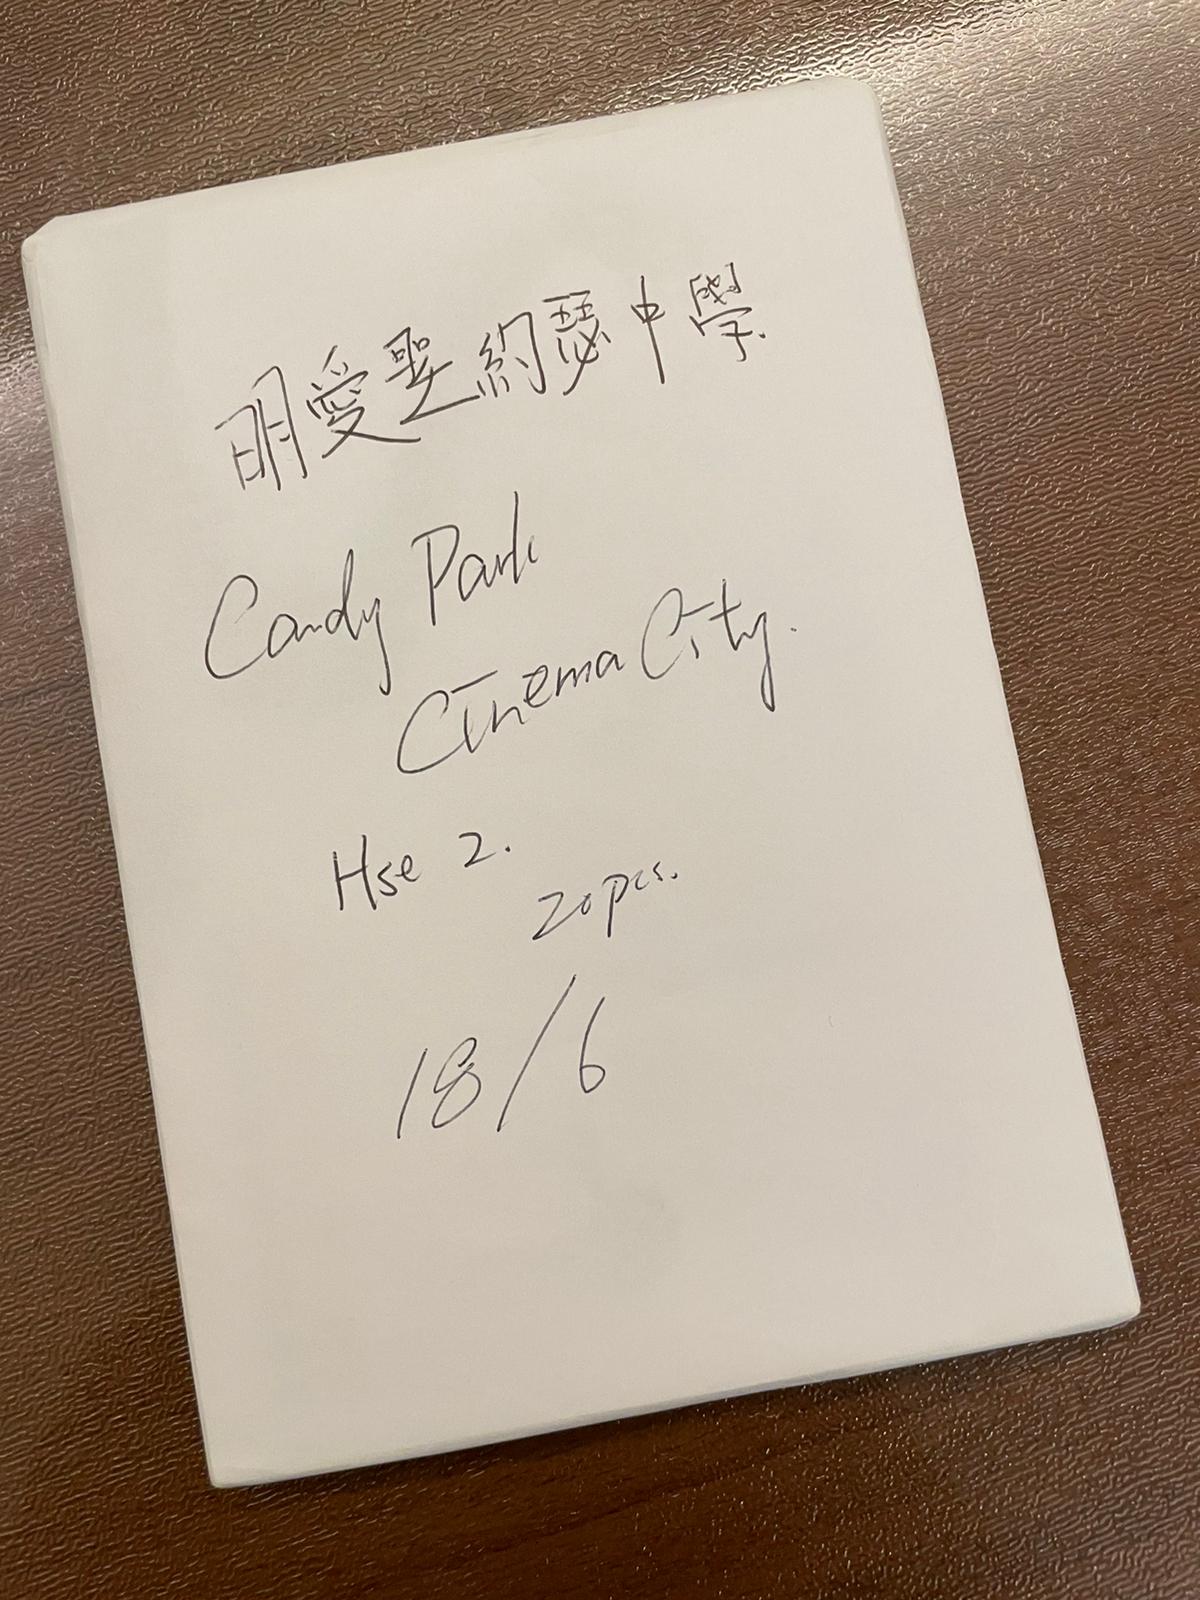 明愛聖約瑟中學.
Candy Park
Cinema City.
Hse 2.
20pcs.
18/6